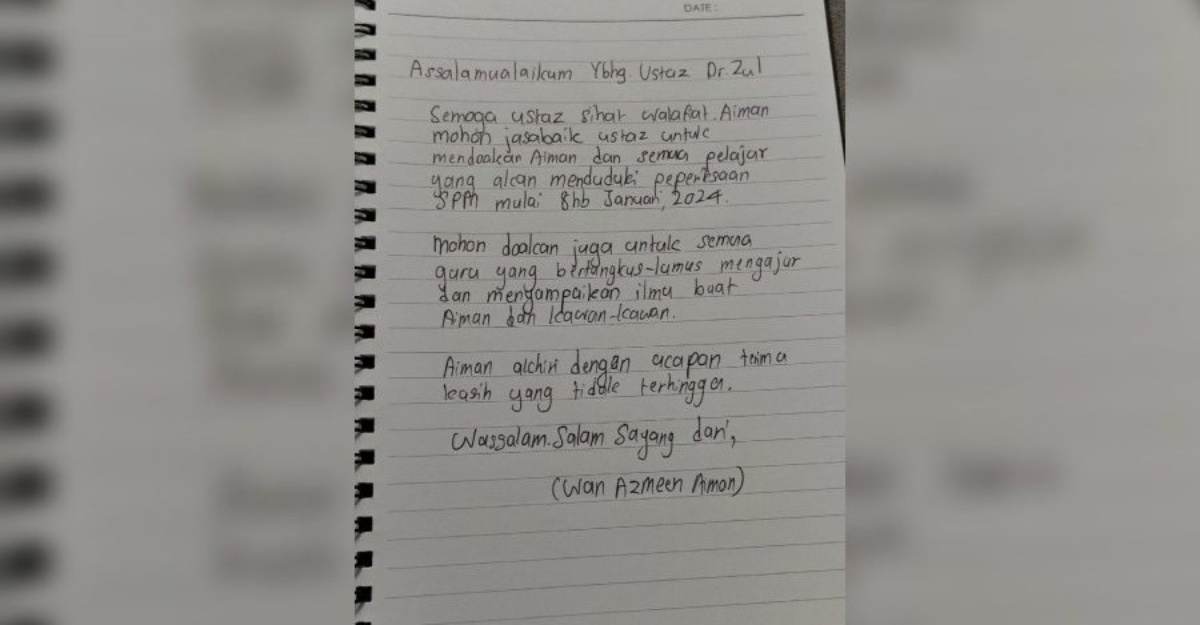 DATE:
Assalamualaikum Ybhg. Ustaz Dr. Zul
Semoga ustaz sihat walafiat. Aiman
mohon jasabaik ustaz untuk
mendoakan Aiman dan semua pelajar
yang akan menduduki peperiksaan
SPM mulai 8hb Januari, 2024.
Mohon doakan juga untuk semua
guru yang bertungkus-lumus mengajar
dan menyampaikan ilmu buat
Aiman dan kawan-kawan.
Aiman akhiri dengan ucapan trima
kasih yang tidak terhingga.
Wassalam. Salam Sayang dari,
(Wan Azmeen Aiman)